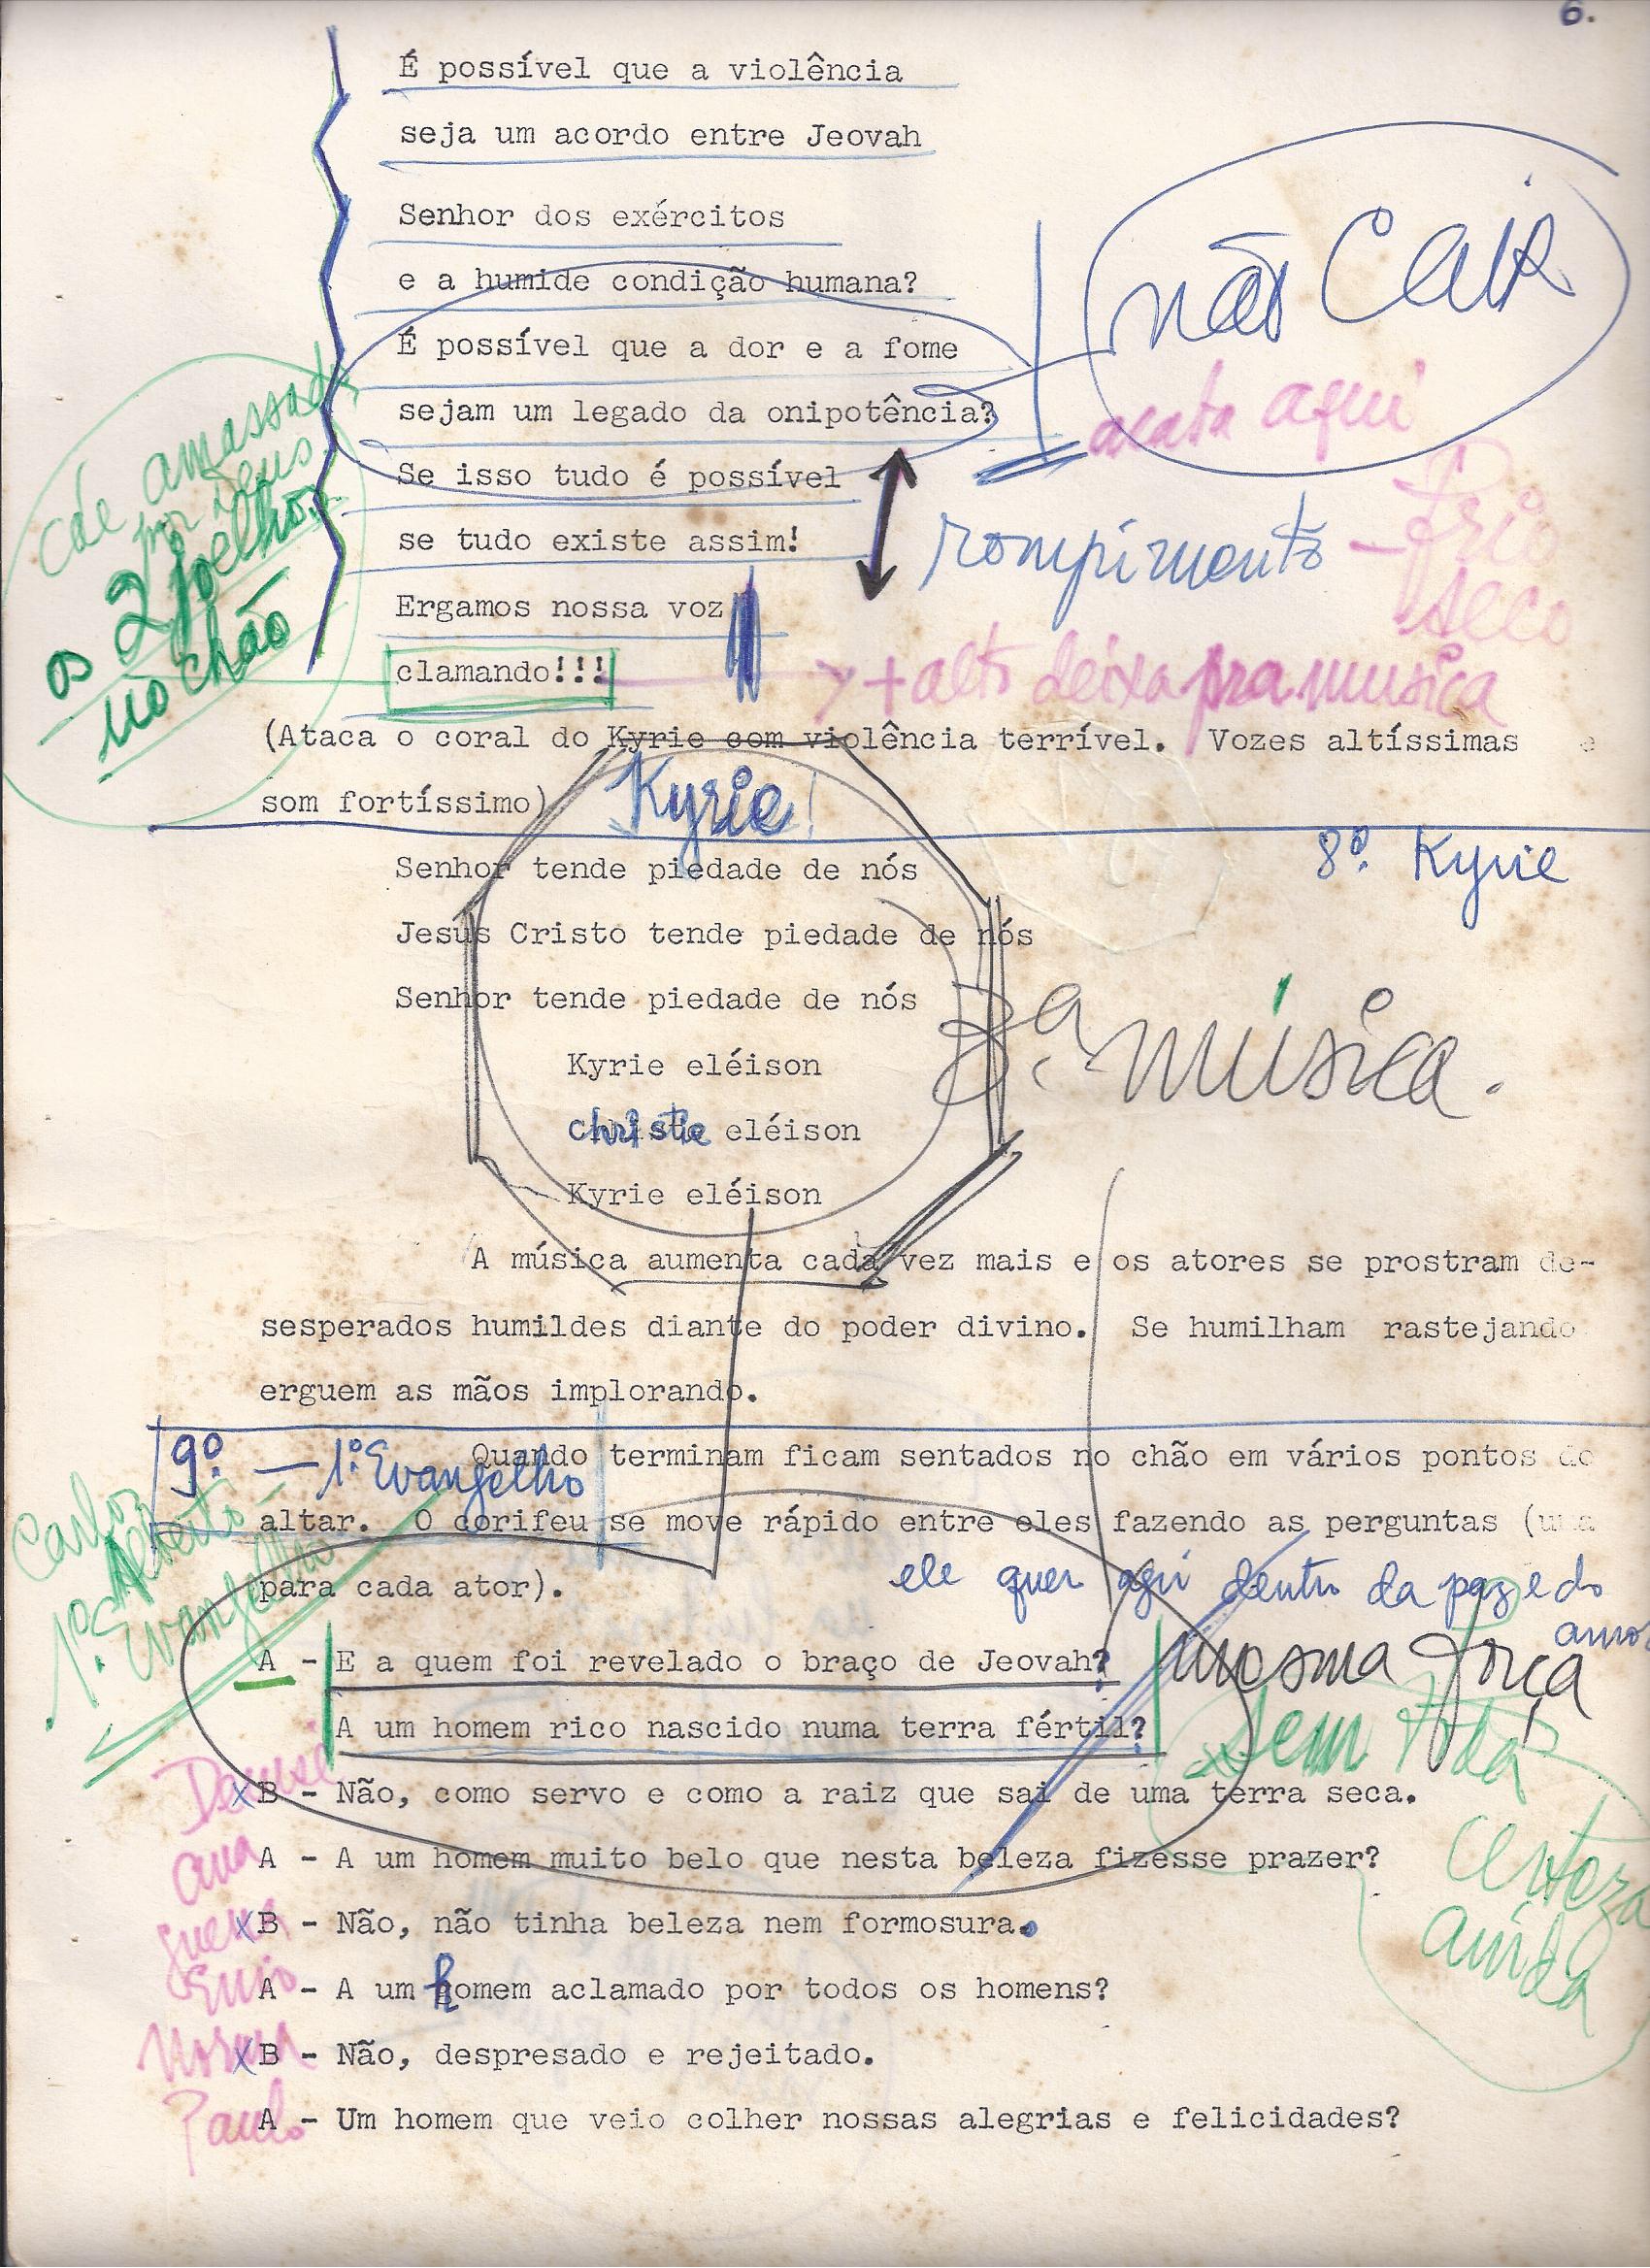 6.
É possível que a violência
seja um acordo entre Jeovah
Senhor dos exércitos
e a humide condição humana?
não Cair
É possível que a dor e a fome
sejam um legado da onipotência?
acata aqui
Se isso tudo é possível
se tudo existe assim!
rompimento – frio
seco
cáe amassada
por Deus
os 2 joelhos
no chão
Ergamos nossa voz
clamando!!!
+ alto deixa pra musica
(Ataca o coral do Kyrie com violência terrível. Vozes altíssimas e
som fortíssimo)
Kyrie!
8º. Kyrie
Senhor tende piedade de nós
Jesus Cristo tende piedade de nós
Senhor tende piedade de nós
3ª música.
Kyrie eléison
christie eléison
Kyrie eléison
A música aumenta cada vez mais e os atores se prostram de-
sesperados humildes diante do poder divino. Se humilham rastejando
erguem as mãos implorando.
9º. — 1º. Evangelho
Quando terminam ficam sentados no chão em vários pontos do
altar. O corifeu se move rápido entre eles fazendo as perguntas (uma
para cada ator).
Carlos
Alberto
1º. Evangelho
ele quer aqui dentro da paz e do
amor
A - E a quem foi revelado o braço de Jeovah?
mesma força
A um homem rico nascido numa terra fértil?
sem toda
certeza
ainda
Denise
X B - Não, como servo e como a raiz que sai de uma terra seca.
Ana
A - A um homem muito belo que nesta beleza fizesse prazer?
X B - Não, não tinha beleza nem formosura.
Enio
A - A um homem aclamado por todos os homens?
Norma
X B - Não, despresado e rejeitado.
Paulo
A - Um homem que veio colher nossas alegrias e felicidades?